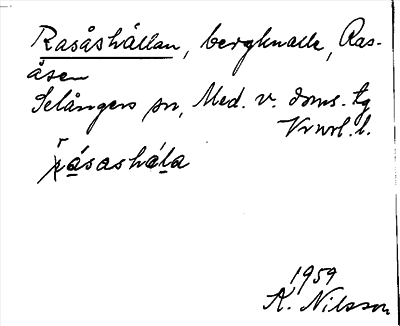 Rasåshällan, bergknalle, Ras-
åsen
Selångers sn, Med. v. doms. tg
Vrnrl. l.
rásashála
1959
K. Nilsson